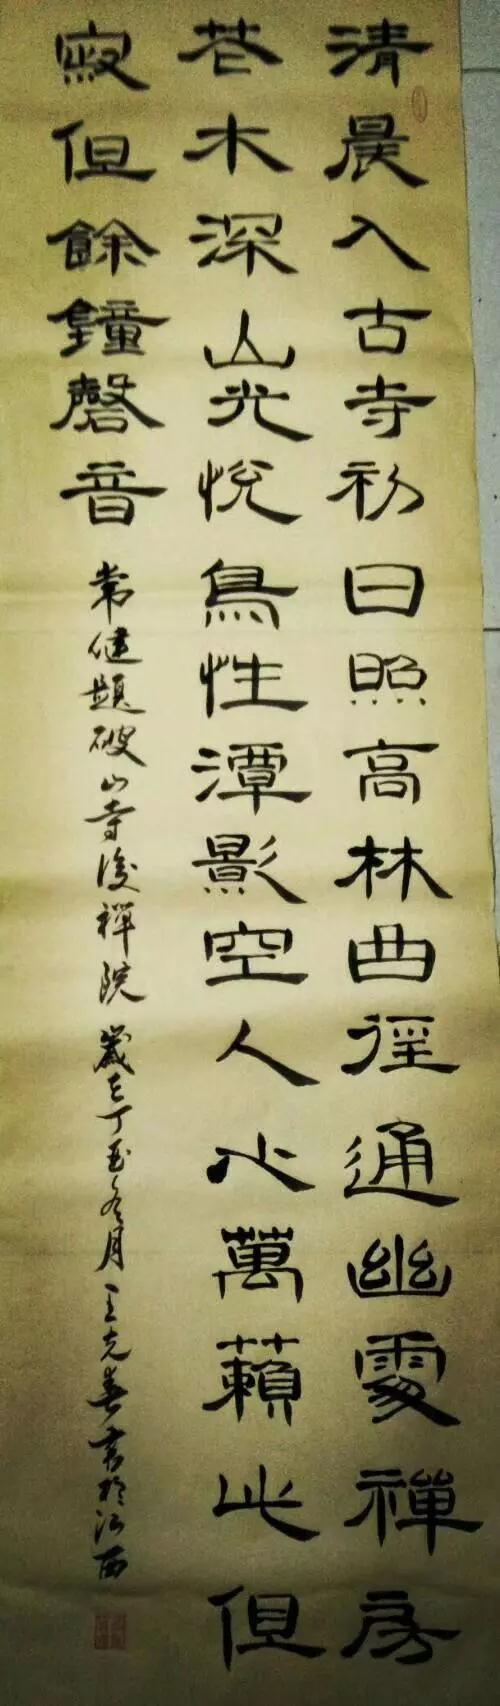 清晨入古寺初日照高林曲徑通幽處禪房
花木深山光悅鳥性潭影空人心萬藾此但
寂但餘鐘磬音 常健題破山寺後禪院 歲在丁酉冬月 王克書於江西